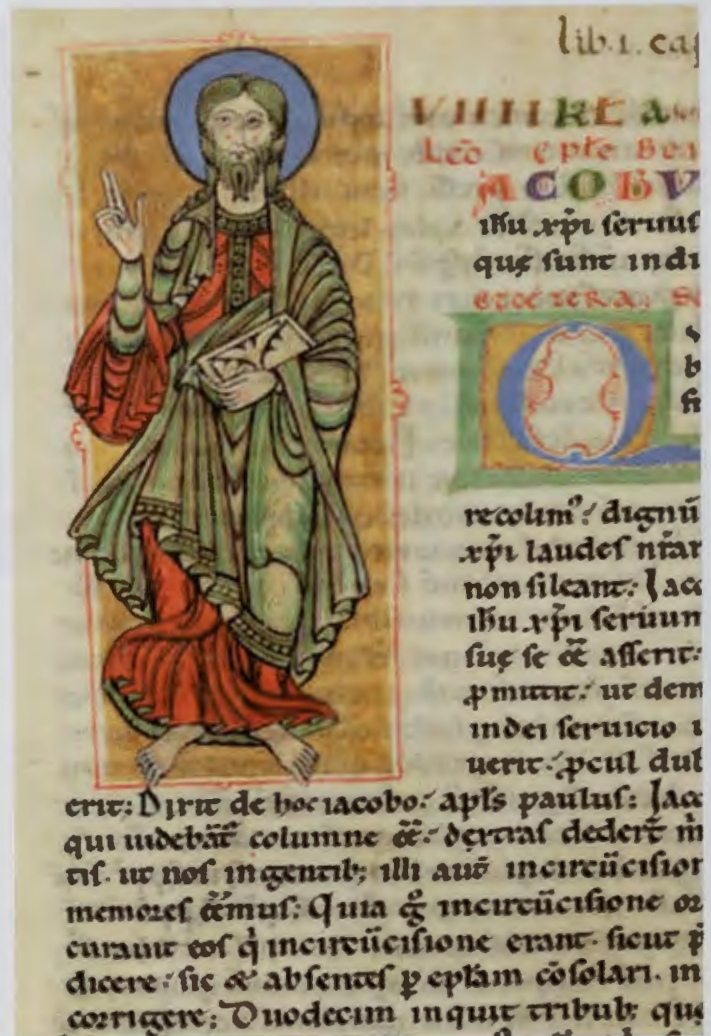 lib. 1. cap
VIIII KL A
Leō eplē Bea
JACOBV
ihu xpi seruus
quę sunt indi
et cetera. Se
recolim᷒. dignū
xpi laudes nrar
non sileant: Jaco
ihu xpi seruum
suę se ee asserit:
ꝓmittit. ut dem
in dei seruicio
uerit. ꝓcul dub
erit: Dixit de hoc iacobo. apls paulus: Jaco
qui uidebāt columne ee. dextras dedert m
tis. ut nos in gentib; illi aut in circūcision
memores eēmus: Quia in circūcisione
curauit eos q in circūcisione erant. sicut p
dicere. sic et absentes p eplam cōsolari. in
corrigere: Duodecim inquit tribub; quę